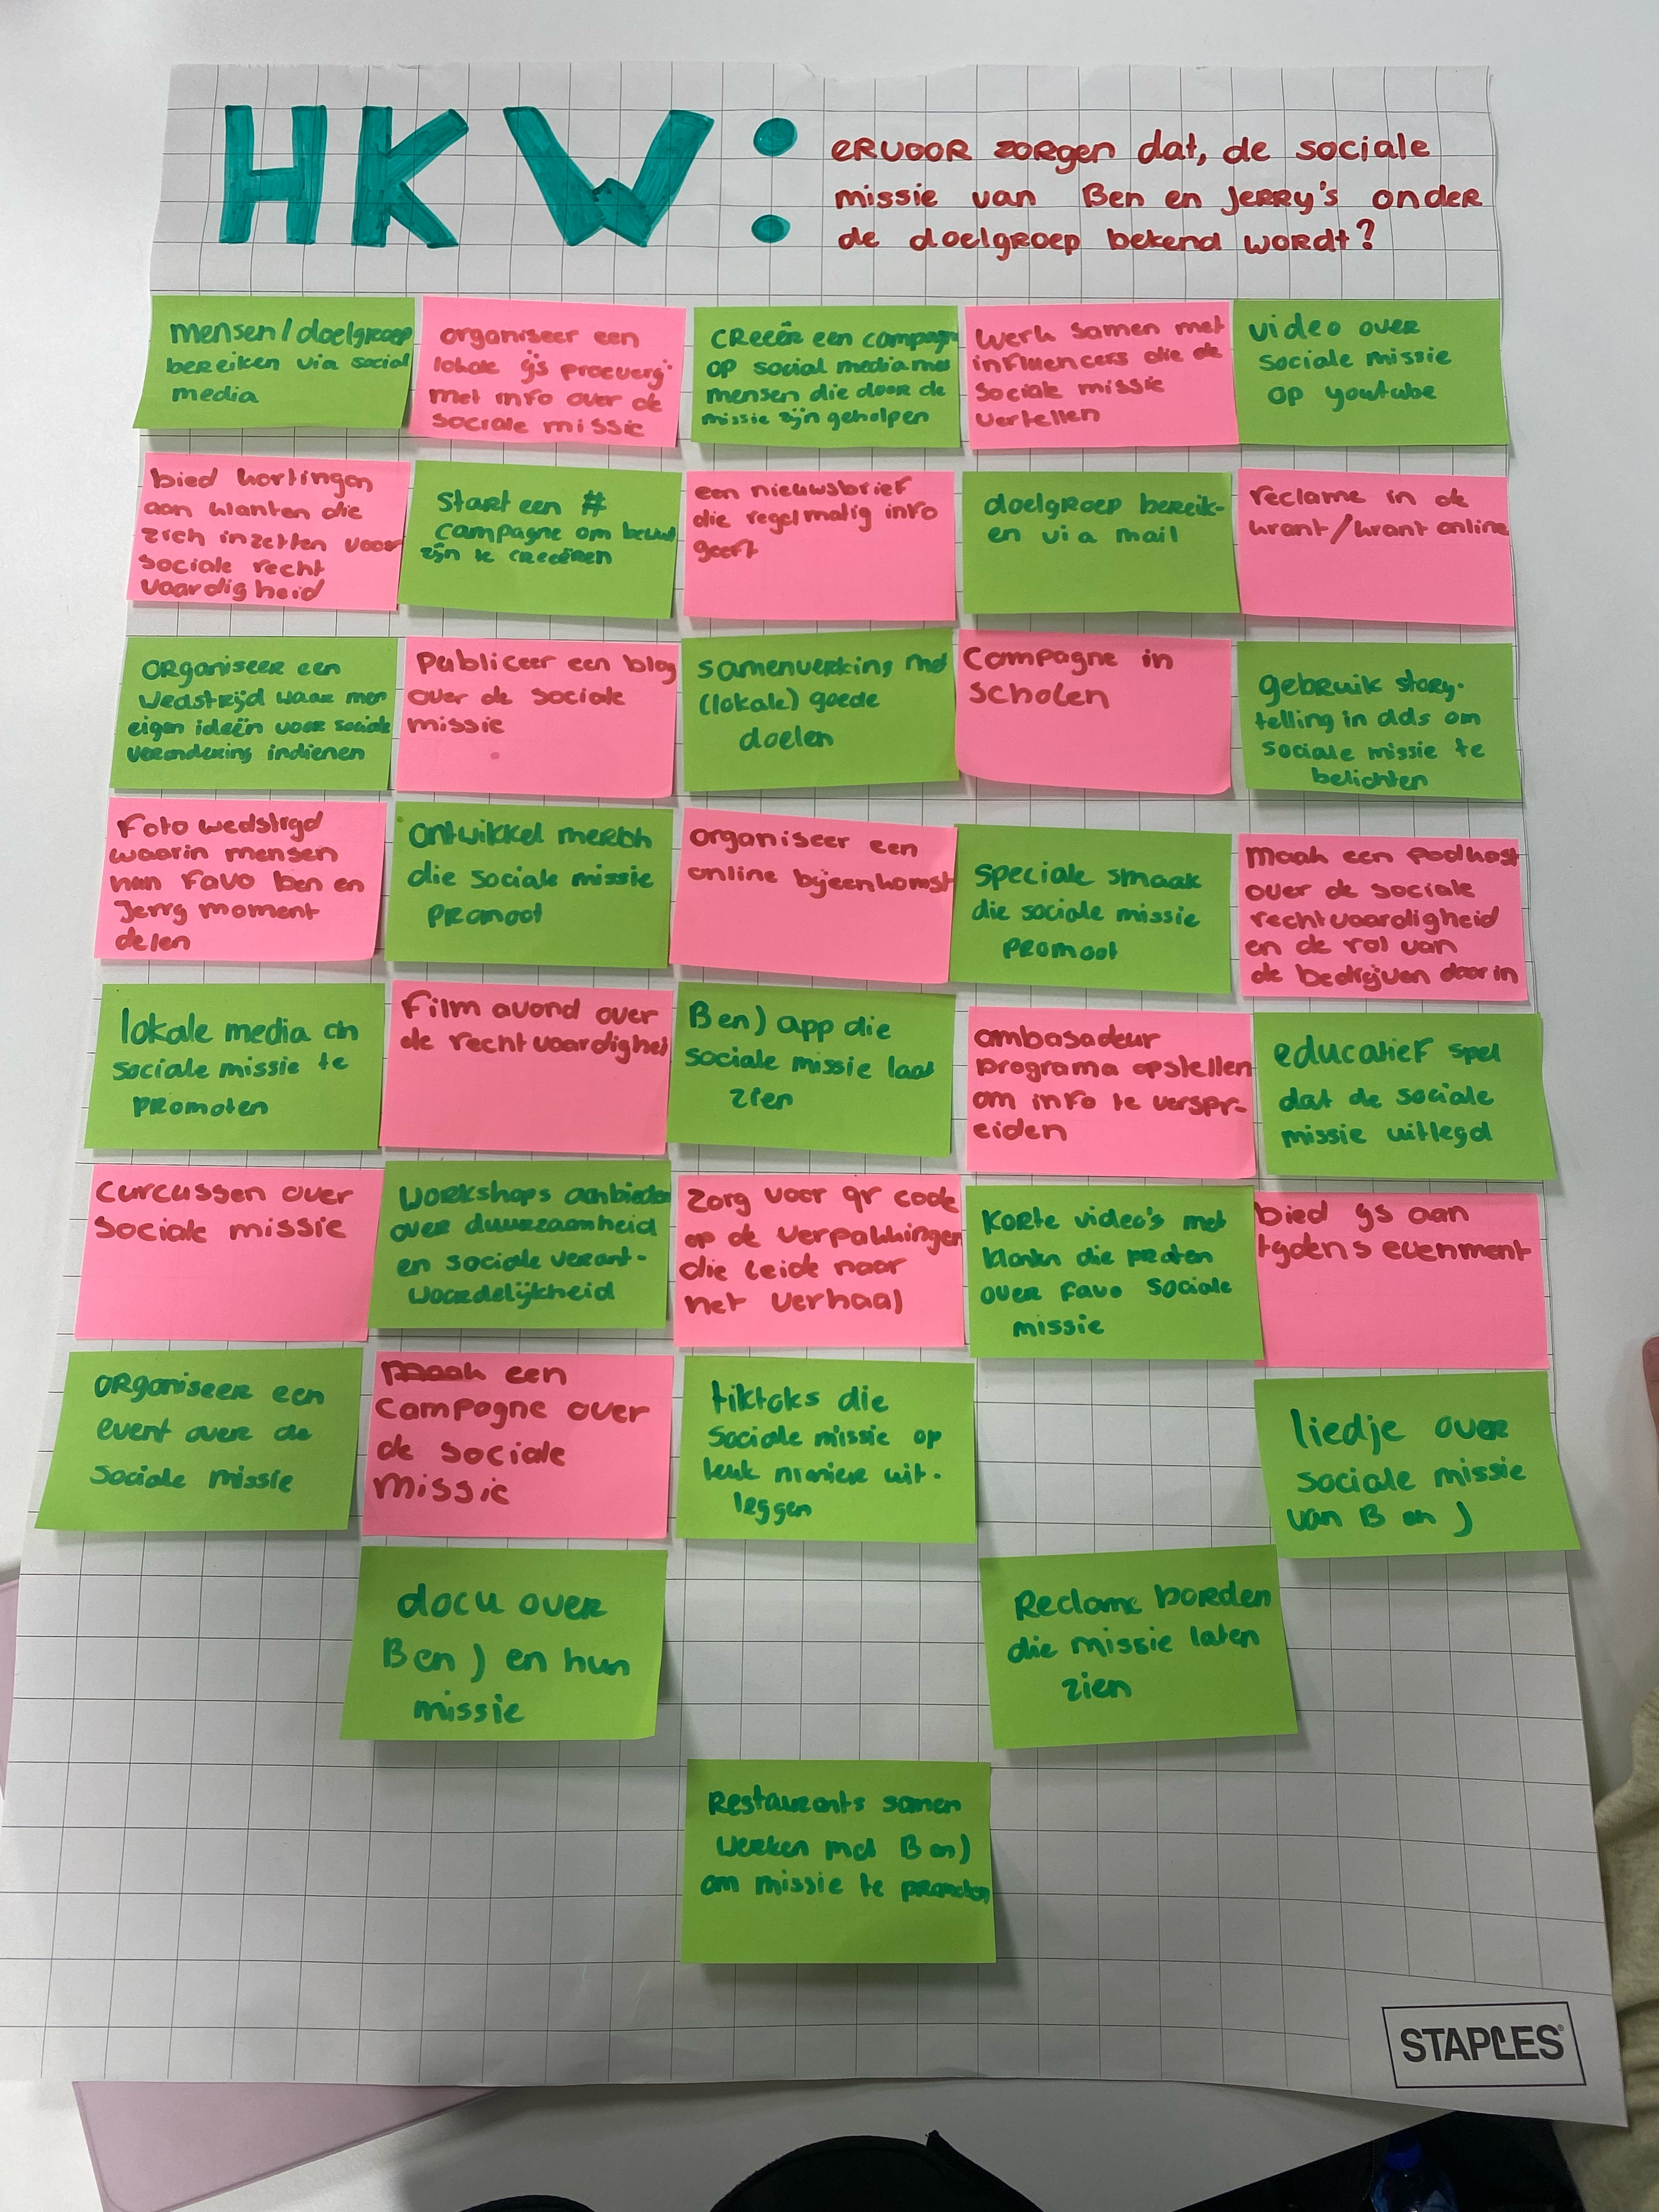 HKW:
ervoor zorgen dat, de sociale
missie van Ben en Jerry's onder
de doelgroep bekend wordt?
mensen/doelgroep
bereiken via social
media
organiseer een
lokale ijs proeverij
met info over de
sociale missie
Creeër een campagn
op social media met
mensen die door de
missie zijn geholpen
Werk samen met
influencers die de
sociale missie
vertellen
video over
sociale missie
op youtube
bied kortingen
aan klanten die
zich inzetten voor
sociale recht
vaardigheid
Start een #
campagne om bewust
zijn te creeëren
een nieuwsbrief
die regelmatig info
geeft
doelgroep bereik-
en via mail
reclame in de
krant/krant online
organiseer een
wedstrijd waar men
eigen ideeën voor sociale
verandering indienen
Publiceer een blog
over de sociale
missie
samenwerking met
(lokale) goede
doelen
Campagne in
scholen
gebruik story-
telling in adds om
sociale missie te
belichten
Foto wedstrijd
waarin mensen
hun favo ben en
Jerry moment
delen
ontwikkel merch
die sociale missie
promoot
organiseer een
online bijeenkomst
speciale smaak
die sociale missie
promoot
maak een podkast
over de sociale
rechtvaardigheid
en de rol van
de bedrijven daar in
lokale media om
sociale missie te
promoten
Film avond over
de rechtvaardighei
B en J app die
sociale missie laat
zien
ambasadeur
programa opstellen
om info te verspr-
eiden
educatief spel
dat de sociale
missie uitlegd
Curcussen over
sociale missie
workshops aanbieden
over duurzaamheid
en sociale verant-
woordelijkheid
Zorg voor qr code
op de verpakkingen
die leide naar
het verhaal
korte video's met
klanten die praten
over favo sociale
missie
bied ijs aan
tijdens evenment
organiseer een
event over de
sociale missie
maak een
campagne over
de sociale
missie
tiktoks die
sociale missie op
leuk maniere uit-
leggen
liedje over
sociale missie
van B en J
docu over
B en J en hun
missie
Reclame borden
die missie laten
zien
Restaurants samen
werken met B en J
om missie te promoten
STAPLES